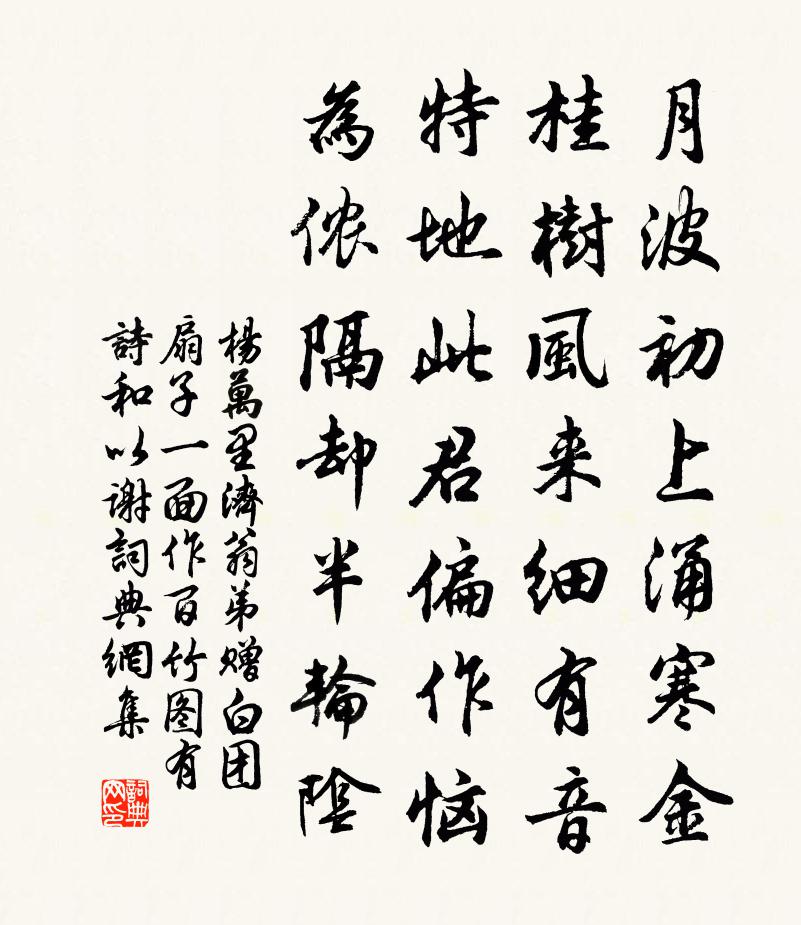 月波初上涌寒金
桂樹風来细有音
特地此君偏作恼
為侬隔却半輪陰
楊萬里濟翁弟赠白团
扇子一面作百竹图有
詩和以謝詞典網集
詞典
网印